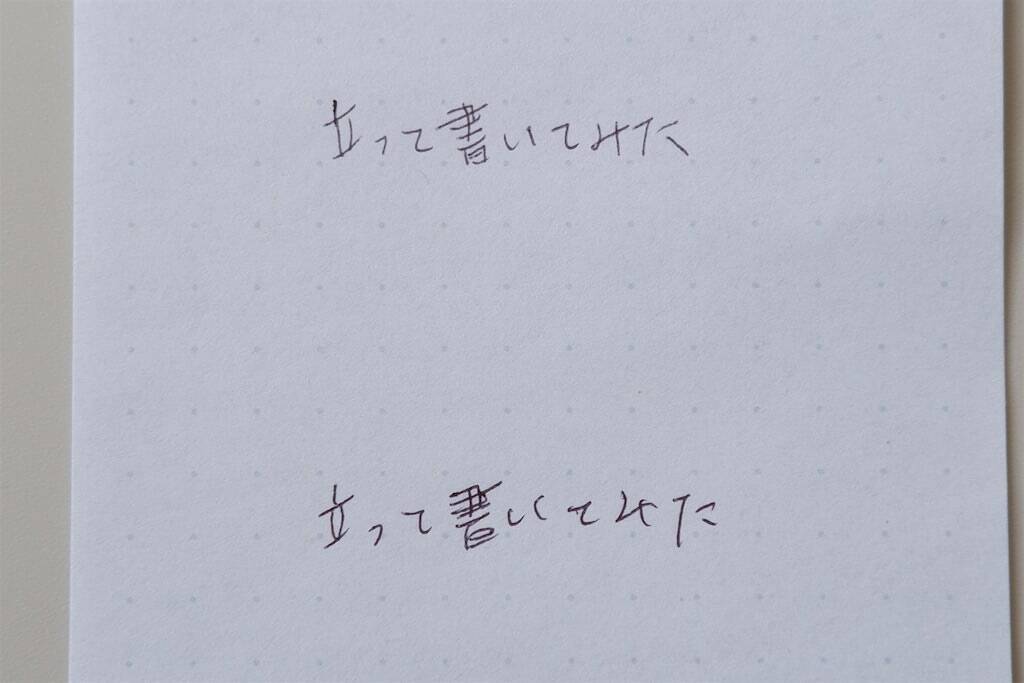 立って書いてみた
立って書いてみた